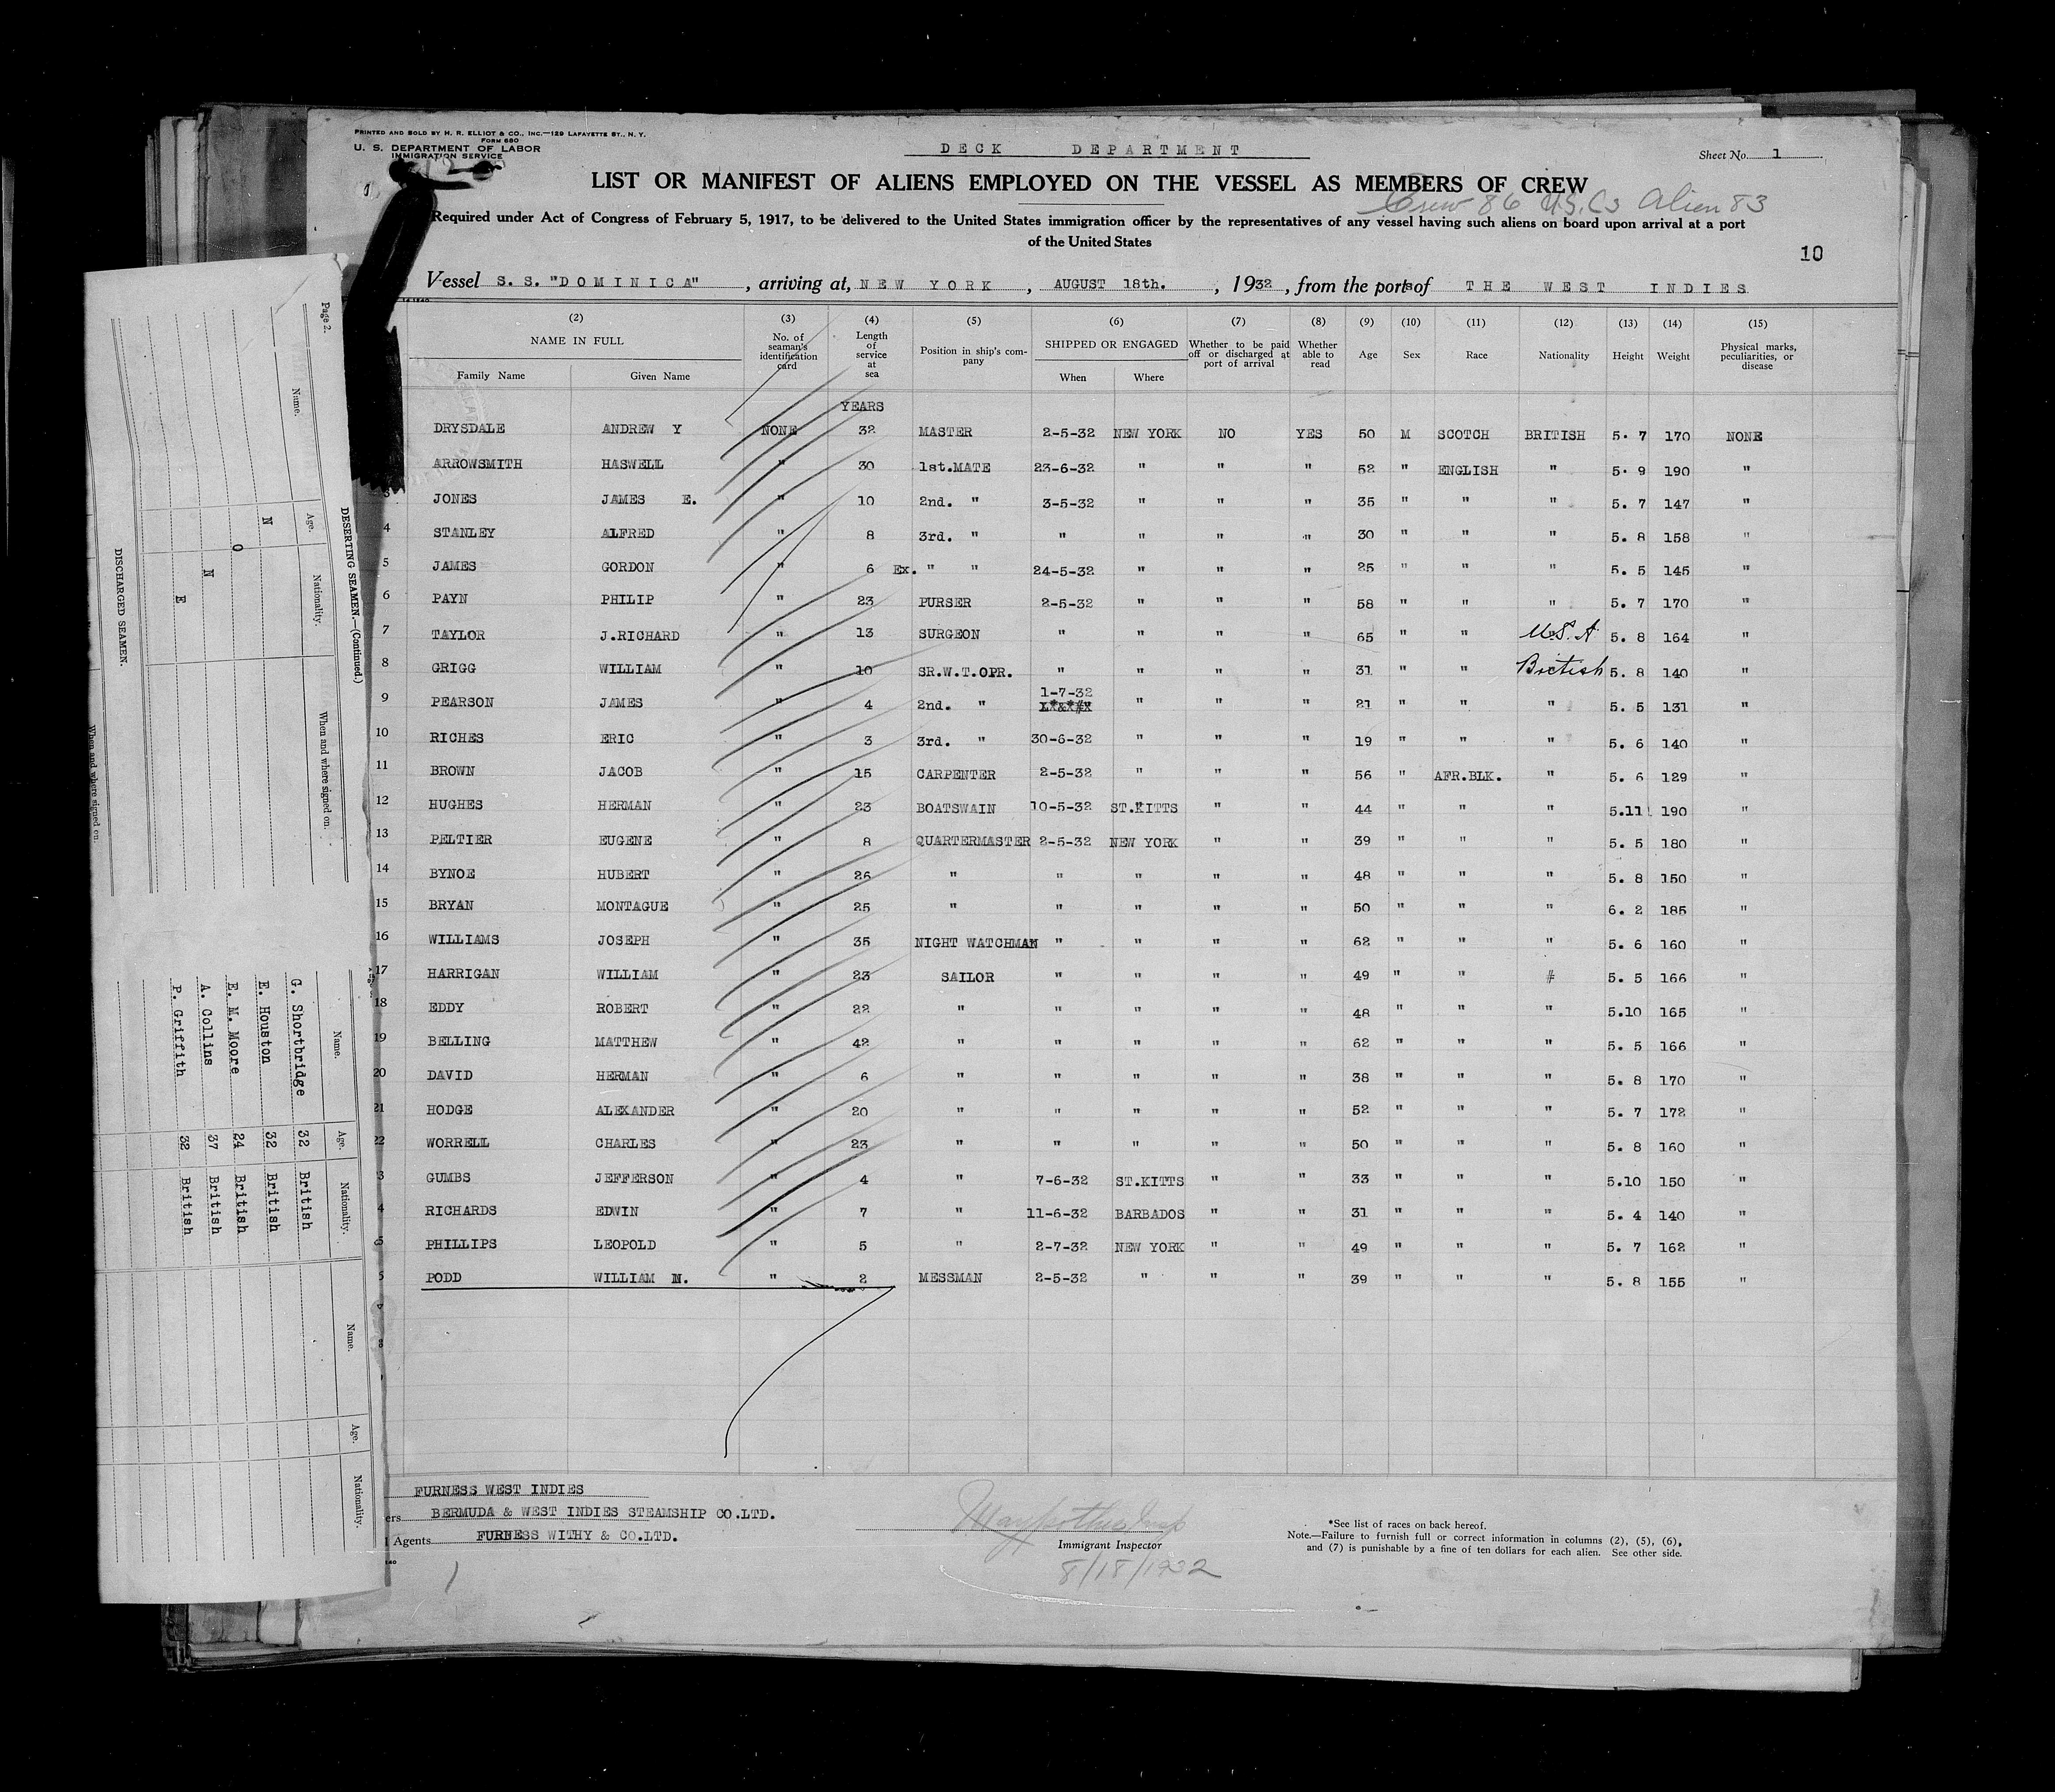 PRINTED AND SOLD BY H. R. ELLIOT & CO., INC.—129 LAFAYETTE ST., N. Y.
FORM 680
U. S. DEPARTMENT OF LABOR
IMMIGRATION SERVICE
DECK DEPARTMENT
Sheet No. 1
LIST OR MANIFEST OF ALIENS EMPLOYED ON THE VESSEL AS MEMBERS OF CREW
Crew 86 U.S.C3 Alien 83
Required under Act of Congress of February 5, 1917, to be delivered to the United States immigration officer by the representatives of any vessel having such aliens on board upon arrival at a port
of the United States
10
Vessel S. S. "DOMINICA", arriving at, NEW YORK, AUGUST 18th., 1932, from the ports of THE WEST INDIES
(2) (3) (4) (5) (6) (7) (8) (9) (10) (11) (12) (13) (14) (15)
NAME IN FULL No. of seaman's identification card Length of service at sea Position in ship's company SHIPPED OR ENGAGED Whether to be paid off or discharged at port of arrival Whether able to read Age Sex Race Nationality Height Weight Physical marks, peculiarities, or disease
Family Name Given Name When Where
YEARS
DRYSDALE ANDREW Y NONE 32 MASTER 2-5-32 NEW YORK NO YES 50 M SCOTCH BRITISH 5. 7 170 NONE
ARROWSMITH HASWELL " 30 1st.MATE 23-6-32 " " " 52 " ENGLISH " 5. 9 190 "
3 JONES JAMES E. " 10 2nd. " 3-5-32 " " " 35 " " " 5. 7 147 "
4 STANLEY ALFRED " 8 3rd. " " " " " 30 " " " 5. 8 158 "
5 JAMES GORDON " 6 Ex. " " 24-5-32 " " " 25 " " " 5. 5 145 "
6 PAYN PHILIP " 23 PURSER 2-5-32 " " " 58 " " " 5. 7 170 "
7 TAYLOR J.RICHARD " 13 SURGEON " " " " 65 " " U.S.A 5. 8 164 "
8 GRIGG WILLIAM " 10 SR.W.T.OPR. " " " " 31 " " British 5. 8 140 "
9 PEARSON JAMES " 4 2nd. " 1-7-32 " " " 21 " " " 5. 5 131 "
10 RICHES ERIC " 3 3rd. " 30-6-32 " " " 19 " " " 5. 6 140 "
11 BROWN JACOB " 15 CARPENTER 2-5-32 " " " 56 " AFR.BLK. " 5. 6 129 "
12 HUGHES HERMAN " 23 BOATSWAIN 10-5-32 ST.KITTS " " 44 " " " 5.11 190 "
13 PELTIER EUGENE " 8 QUARTERMASTER 2-5-32 NEW YORK " " 39 " " " 5. 5 180 "
14 BYNOE HUBERT " 26 " " " " " 48 " " " 5. 8 150 "
15 BRYAN MONTAGUE " 25 " " " " " 50 " " " 6. 2 185 "
16 WILLIAMS JOSEPH " 35 NIGHT WATCHMAN " " " " 62 " " " 5. 6 160 "
17 HARRIGAN WILLIAM " 23 SAILOR " " " " 49 " " # 5. 5 166 "
18 EDDY ROBERT " 22 " " " " " 48 " " " 5.10 165 "
19 BELLING MATTHEW " 42 " " " " " 62 " " " 5. 5 166 "
20 DAVID HERMAN " 6 " " " " " 38 " " " 5. 8 170 "
21 HODGE ALEXANDER " 20 " " " " " 52 " " " 5. 7 172 "
22 WORRELL CHARLES " 23 " " " " " 50 " " " 5. 8 160 "
3 GUMBS JEFFERSON " 4 " 7-6-32 ST.KITTS " " 33 " " " 5.10 150 "
4 RICHARDS EDWIN " 7 " 11-6-32 BARBADOS " " 31 " " " 5. 4 140 "
5 PHILLIPS LEOPOLD " 5 " 2-7-32 NEW YORK " " 49 " " " 5. 7 162 "
PODD WILLIAM N. " 2 MESSMAN 2-5-32 " " " 39 " " " 5. 8 155 "
FURNESS WEST INDIES
ers BERMUDA & WEST INDIES STEAMSHIP CO.LTD.
Agents FURNESS WITHY & CO.LTD.
Immigrant Inspector
8/18/1932
*See list of races on back hereof.
Note.—Failure to furnish full or correct information in columns (2), (5), (6),
and (7) is punishable by a fine of ten dollars for each alien. See other side.
Page 2.
DESERTING SEAMEN.—(Continued.)
Name. Age. Nationality. When and where signed on.
N O N E
DISCHARGED SEAMEN.
When and where signed on
Name. Age. Nationality. Name. Age. Nationality.
G. Shortbridge 32 British
E. Houston 32 British
E. M. Moore 24 British
A. Collins 37 British
P. Griffith 32 British